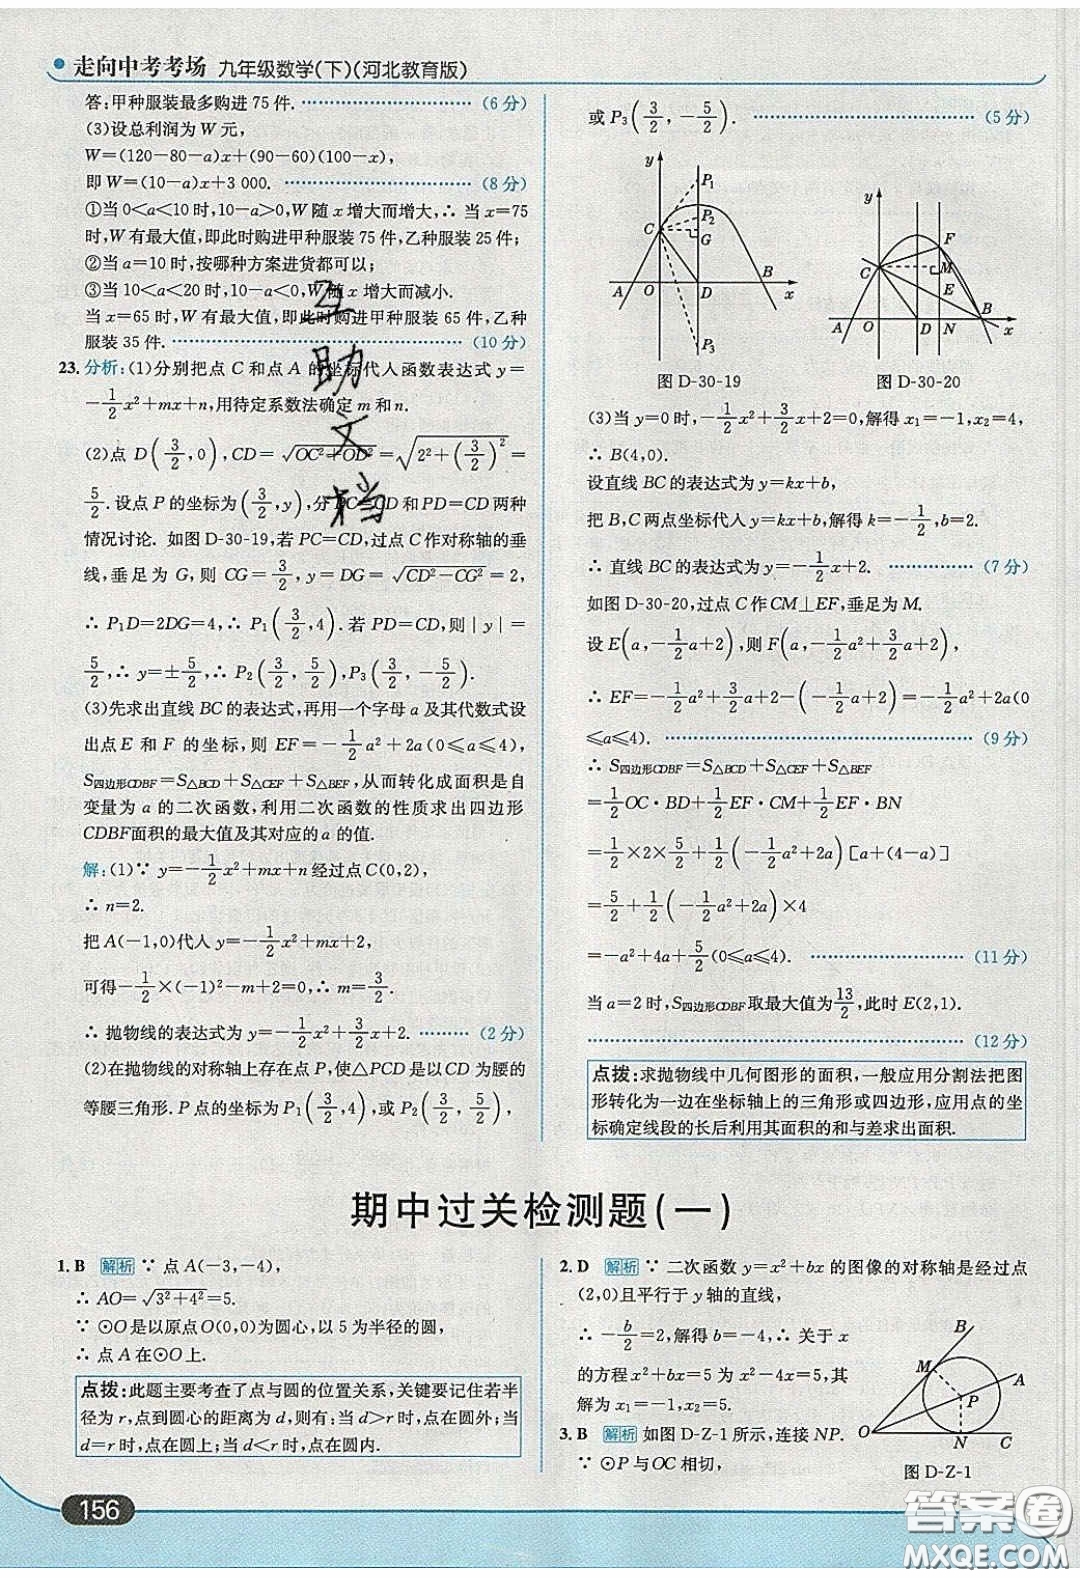 走向中考考场 九年级数学(下)(河北教育版)
答:甲种服装最多购进 75 件. (6 分)
(3)设总利润为 W 元,
W=(120-80-a)x+(90-60)(100-x),
即 W=(10-a)x+3 000. (8 分)
①当 0<a<10 时,10-a>0,W 随 x 增大而增大,∴ 当 x=75
时,W 有最大值,即此时购进甲种服装 75 件,乙种服装 25 件;
②当 a=10 时,按哪种方案进货都可以;
③当 10<a<20 时,10-a<0,W 随 x 增大而减小.
当 x=65 时,W 有最大值,即此时购进甲种服装 65 件,乙种
服装 35 件. (10 分)
23. 分析:(1)分别把点 C 和点 A 的坐标代人函数表达式 y=
-1/2x²+mx+n,用待定系数法确定 m 和 n.
(2)点 D(3/2,0),CD=√(OC²+OD²)=√(2²+(3/2)²)=
5/2.设点 P 的坐标为(3/2,y),分 PC=CD 和 PD=CD 两种
情况讨论. 如图 D-30-19,若 PC=CD,过点 C 作对称轴的垂
线,垂足为 G,则 CG=3/2,y=DG=√(CD²-CG²)=2,
∴ P₁D=2DG=4,∴ P₁(3/2,4).若 PD=CD,则|y|=
5/2,∴ y=±5/2,∴ P₂(3/2,5/2),P₃(3/2,-5/2).
(3)先求出直线 BC 的表达式,再用一个字母 a 及其代数式设
出点 E 和 F 的坐标,则 EF=-1/2a²+2a(0≤a≤4),
S四边形CDBF=S△BCD+S△CEF+S△BEF,从而转化成面积是自
变量为 a 的二次函数,利用二次函数的性质求出四边形
CDBF面积的最大值及其对应的 a 的值.
解:(1)∵ y=-1/2x²+mx+n 经过点 C(0,2),
∴ n=2.
把 A(-1,0)代人 y=-1/2x²+mx+2,
可得-1/2×(-1)²-m+2=0,∴ m=3/2.
∴ 抛物线的表达式为 y=-1/2x²+3/2x+2. (2 分)
(2)在抛物线的对称轴上存在点 P,使△PCD 是以 CD 为腰的
等腰三角形. P 点的坐标为 P₁(3/2,4),或 P₂(3/2,5/2),
互
助
文
档
或 P₃(3/2,-5/2). (5 分)
y P₁ P₂ C G A O D B x P₃
图 D-30-19
y F C M E A O D N B x
图 D-30-20
(3)当 y=0 时,-1/2x²+3/2x+2=0,解得 x₁=-1,x₂=4,
∴ B(4,0).
设直线 BC 的表达式为 y=kx+b,
把 B,C 两点坐标代人 y=kx+b,解得 k=-1/2,b=2.
∴ 直线 BC 的表达式为 y=-1/2x+2. (7 分)
如图 D-30-20,过点 C 作 CM⊥EF,垂足为 M.
设 E(a,-1/2a+2),则 F(a,-1/2a²+3/2a+2),
∴ EF=-1/2a²+3/2a+2-(-1/2a+2)=-1/2a²+2a(0
≤a≤4). (9 分)
∴ S四边形CDBF=S△BCD+S△CEF+S△BEF
=1/2OC·BD+1/2EF·CM+1/2EF·BN
=1/2×2×5/2+1/2(-1/2a²+2a)[a+(4-a)]
=5/2+1/2(-1/2a²+2a)×4
=-a²+4a+5/2(0≤a≤4). (11 分)
当 a=2 时,S四边形CDBF取最大值为13/2,此时 E(2,1).
(12 分)
点拨:求抛物线中几何图形的面积,一般应用分割法把图
形转化为一边在坐标轴上的三角形或四边形,应用点的坐
标确定线段的长后利用其面积的和与差求出面积.
期中过关检测题(一)
1. B 解析 ∵ 点 A(-3,-4),
∴ AO=√(3²+4²)=5.
∵ ⊙O 是以原点 O(0,0)为圆心,以 5 为半径的圆,
∴ 点 A 在⊙O 上.
点拨:此题主要考查了点与圆的位置关系,关键要记住若半
径为 r,点到圆心的距离为 d,则有:当 d>r 时,点在圆外;当
d=r 时,点在圆上;当 d<r 时,点在圆内.
2. D 解析 ∵ 二次函数 y=x²+bx 的图像的对称轴是经过点
(2,0)且平行于 y 轴的直线,
∴ -b/2=2,解得 b=-4,∴ 关于 x
的方程 x²+bx=5 为 x²-4x=5,其
解为 x₁=-1,x₂=5.
3. B 解析 如图 D-Z-1 所示,连接 NP.
∵ ⊙P 与 OC 相切,
B M A P O N C
图 D-Z-1
156
答案圈
MXQE.COM